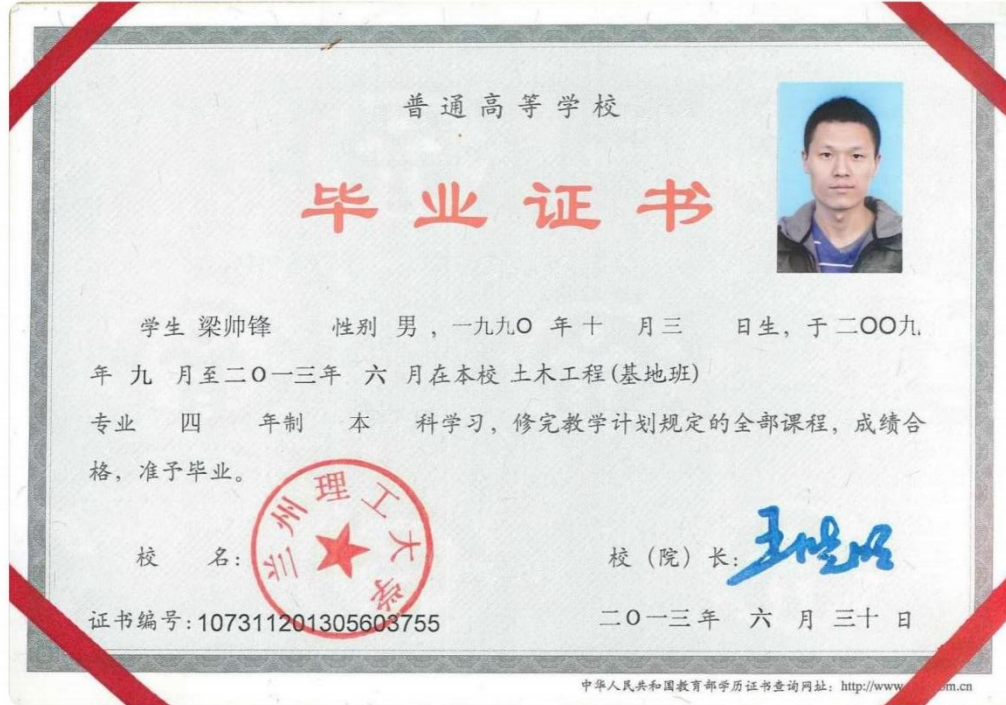 普通高等学校
毕业证书
学生 梁帅锋 性别 男 ，一九九O 年 十 月 三 日生，于二OO九
年 九 月至二O一三年 六 月在本校 土木工程(基地班)
专业 四 年制 本 科学习，修完教学计划规定的全部课程，成绩合
格，准予毕业。
兰州理工大学
校 名：
校（院）长：
证书编号：107311201305603755
二O一三年 六 月 三十 日
中华人民共和国教育部学历证书查询网址：http://www
om.cn